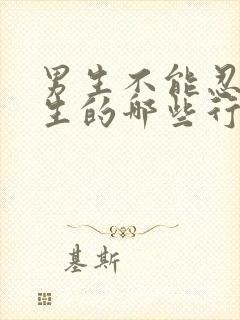 男生不能忍
生的哪些行
基斯